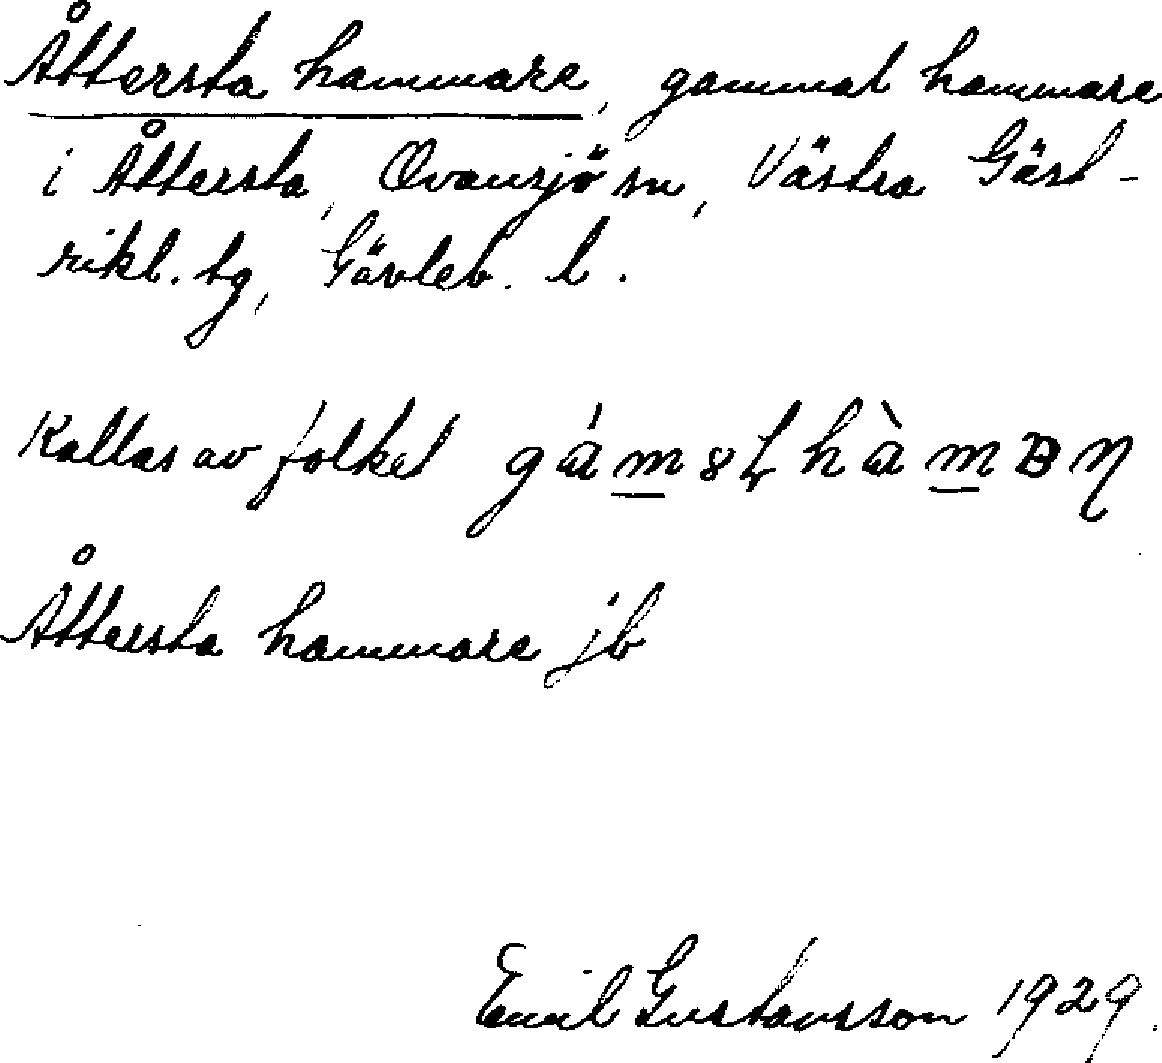 Åttersta hammare, gammal hammare
i Åttersta, Ovansjö sn, Västra Gäst-
rikl. tg, Gävleb. l.
Kallas av folket
Åttersta hammare jb
Emil Gustavsson 1929.